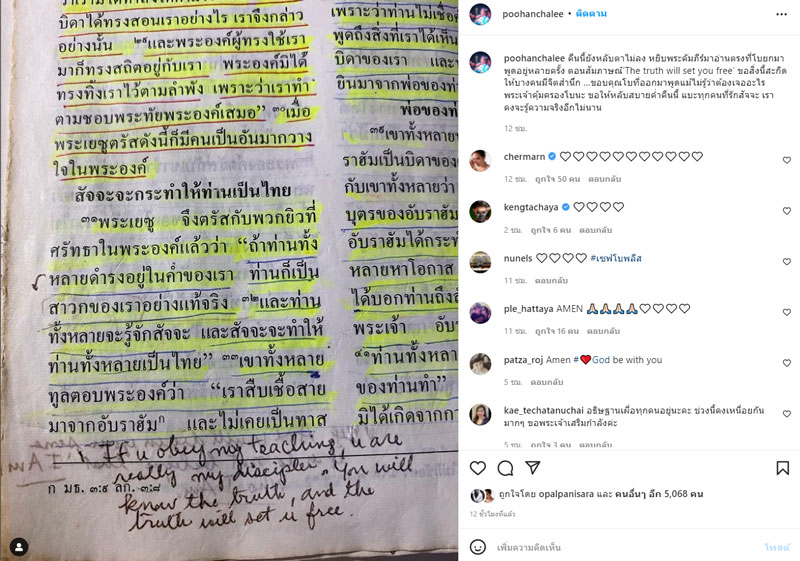 ว่าเรามิได้ทำสิ่งใดตามใจชอบ แต่พระ
บิดาได้ทรงสอนเราอย่างไร เราจึงกล่าว
อย่างนั้น ²⁹และพระองค์ผู้ทรงใช้เรา
มาก็ทรงสถิตอยู่กับเรา พระองค์มิได้
ทรงทิ้งเราไว้ตามลำพัง เพราะว่าเราทำ
ตามชอบพระทัยพระองค์เสมอ” ³⁰เมื่อ
พระเยซูตรัสดังนี้ก็มีคนเป็นอันมากวาง
ใจในพระองค์
สัจจะจะกระทำให้ท่านเป็นไทย
³¹พระเยซู จึงตรัสกับพวกยิวที่
ศรัทธาในพระองค์แล้วว่า “ถ้าท่านทั้ง
หลายดำรงอยู่ในคำของเรา ท่านก็เป็น
สาวกของเราอย่างแท้จริง ³²และท่าน
ทั้งหลายจะรู้จักสัจจะ และสัจจะจะทำให้
ท่านทั้งหลายเป็นไทย” ³³เขาทั้งหลาย
ทูลตอบพระองค์ว่า “เราสืบเชื้อสาย
มาจากอับราฮัมก และไม่เคยเป็นทาส
If u obey my teaching, u are
really my disciples. You will
know the truth, and the
truth will set u free.
I Am
ก มธ. ๓:๙ ลก. ๓:๘
เพราะว่าท่านไม่เชื่อ
พูดถึงสิ่งที่เราได้เห็น
บิดาของเรา และ
ยินมาจากพ่อของท่า
พ่อของท่
³⁹เขาทั้งหลาย
ราฮัมเป็นบิดาของเ
กับเขาทั้งหลายว่า
บุตรของอับราฮัม
อับราฮัมได้กระทำ
หลายหาโอกาส
ได้บอกท่านถึงสั
พระเจ้า อับร
⁴¹ท่านทั้งหลา
ของท่านทำ”
มิได้เกิดจากกา
poohanchalee • ติดตาม
poohanchalee คืนนี้ยังหลับตาไม่ลง หยิบพระคัมภีร์มาอ่านตรงที่โบยกมา
พูดอยู่หลายครั้ง ตอนสัมภาษณ์‘The truth will set you free’ ขอสิ่งนี้สะกิด
ให้บางคนมีจิตสำนึก ...ขอบคุณโบที่ออกมาพูดแม้ไม่รู้ว่าต้องเจออะไร
พระเจ้าคุ้มครองโบนะ ขอให้หลับสบายค่ำคืนนี้ แบะทุกคนที่รักสัจจะ เรา
คงจะรู้ความจริงอีกไม่นาน
12 ชม.
chermarn ♡♡♡♡♡♡♡♡♡♡♡♡
12 ชม. ถูกใจ 50 คน ตอบกลับ
kengtachaya ♡♡♡♡
2 ชม. ถูกใจ 6 คน ตอบกลับ
nunels ♡♡♡♡ #เซฟโบพลีส
11 ชม. ตอบกลับ
ple_hattaya AMEN 🙏🏻🙏🏻🙏🏻🙏🏻♡♡♡♡
11 ชม. ถูกใจ 16 คน ตอบกลับ
patza_roj Amen #❤️God be with you
5 ชม. ตอบกลับ
kae_techatanuchai อธิษฐานเผื่อทุกคนอยู่นะคะ ช่วงนี้คงเหนื่อยกัน
มากๆ ขอพระเจ้าเสริมกำลังค่ะ
5 ชม. ถูกใจ 3 คน ตอบกลับ
ถูกใจโดย opalpanisara และ คนอื่นๆ อีก 5,068 คน
12 ชั่วโมงที่แล้ว
เพิ่มความคิดเห็น
โพสต์